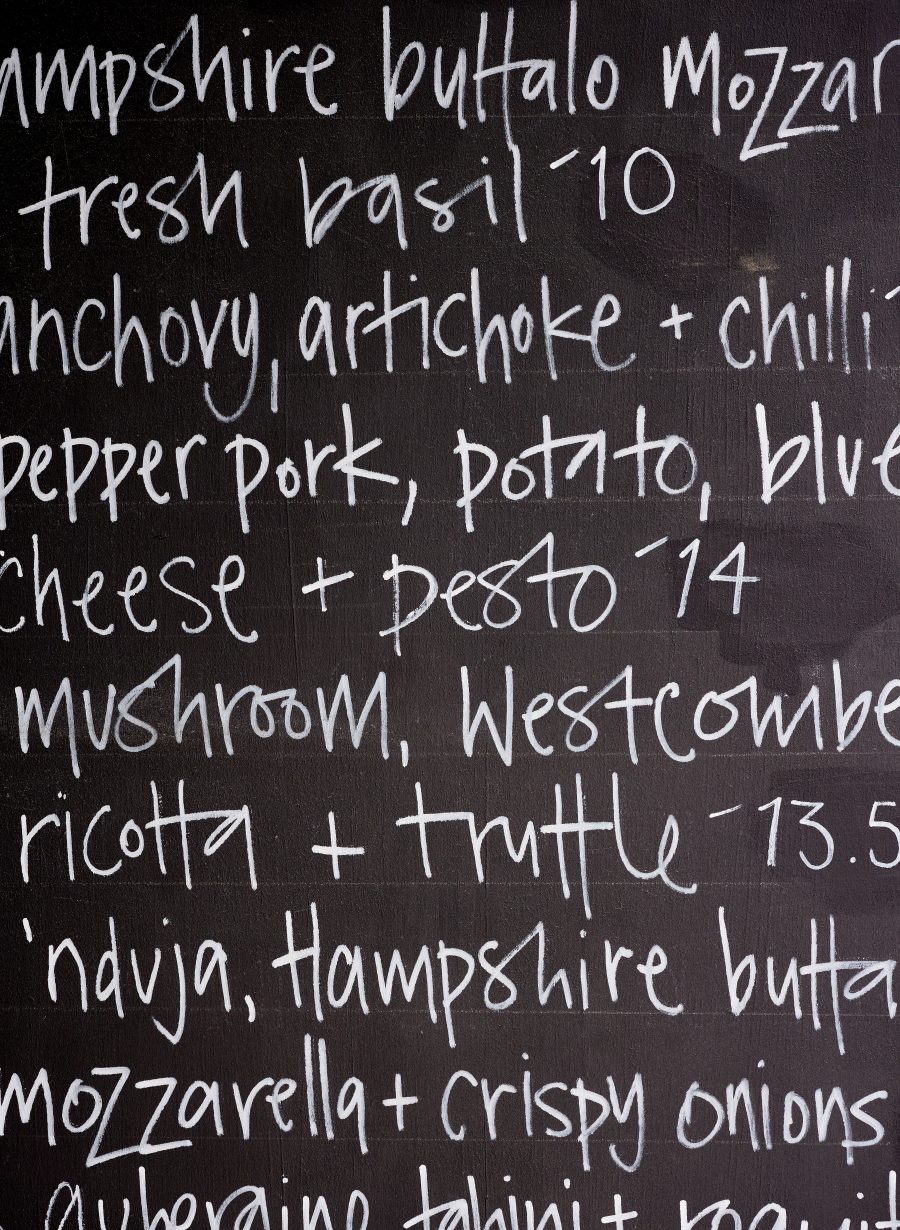 ampshire buffalo mozzar
fresh basil - 10
anchovy, artichoke + chilli -
pepper pork, potato, blue
cheese + pesto - 14
mushroom, Westcombe
ricotta + truffle - 13.5
'nduja, Hampshire buffa
mozzarella + crispy onions
aubergine tahini +